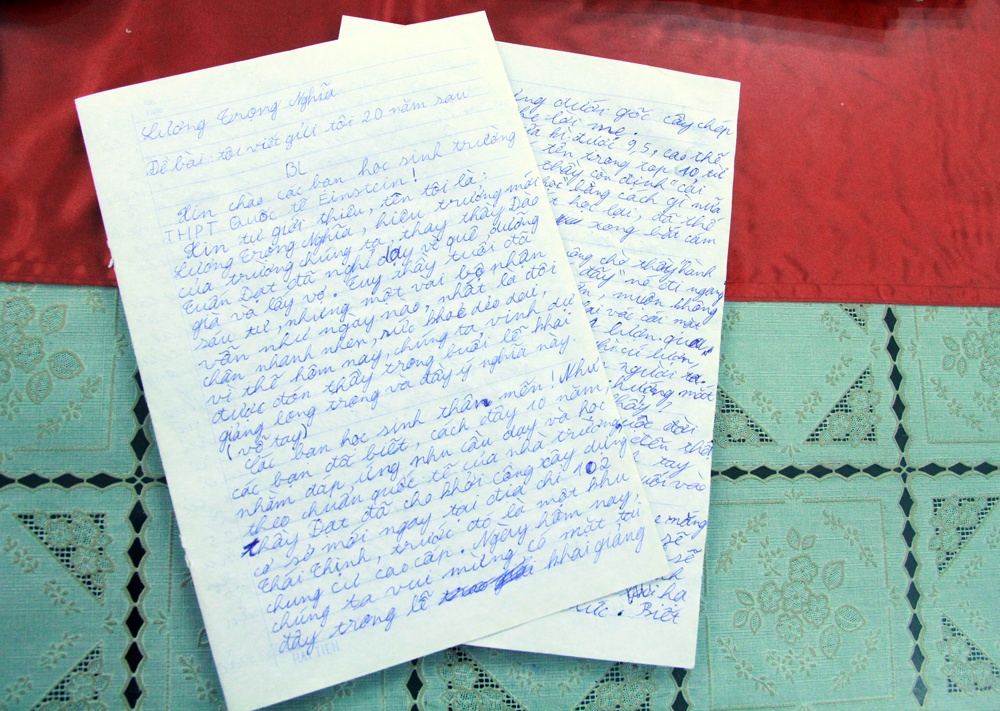 Lương Trọng Nghĩa
Đề bài: tôi viết gửi tôi 20 năm sau
BL
Xin chào các bạn học sinh trường
THPT Quốc tế Einstein!
Xin tự giới thiệu, tên tôi là:
Lương Trọng Nghĩa, hiệu trưởng mới
của trường chúng ta, thay thầy Đào
Tuấn Đạt đã nghỉ dạy về quê dưỡng
già và lấy vợ. Tuy thầy tuổi đã
sáu tư, nhưng một vài bộ phận
vẫn như ngày nào, nhất là đôi
chân nhanh nhẹn, sức khoẻ dẻo dai,
vì thế hôm nay, chúng ta vinh dự
được đón thầy trong buổi lễ khai
giảng long trọng và đầy ý nghĩa này.
(vỗ tay)
Các bạn học sinh thân mến! Như
các bạn đã biết, cách đây 10 năm,
nhằm đáp ứng nhu cầu dạy và học
theo chuẩn quốc tế của nhà trường,
thầy Đạt đã cho khởi công xây dựng
cơ sở mới ngay tại địa chỉ 102
Thái Thịnh, trước đó là một khu
chung cư cao cấp. Ngày hôm nay,
chúng ta vui mừng có mặt tại
đây trong lễ khai giảng
HẢI TIẾN
dưới gốc cây chép
lời mẹ.
kì dưới 9,5, cao thế
tên trong top 10, từ
thầy còn định "cải
học bằng cách gì nữa
học lại, đã thế
xong bài cảm
chờ thầy "hành
đây" nè đi ngay
muôn không
lại với cái mặt
luôn
người ta
hướng một
thầy!
đời
tay
vào
sẽ
hạ
. Biết